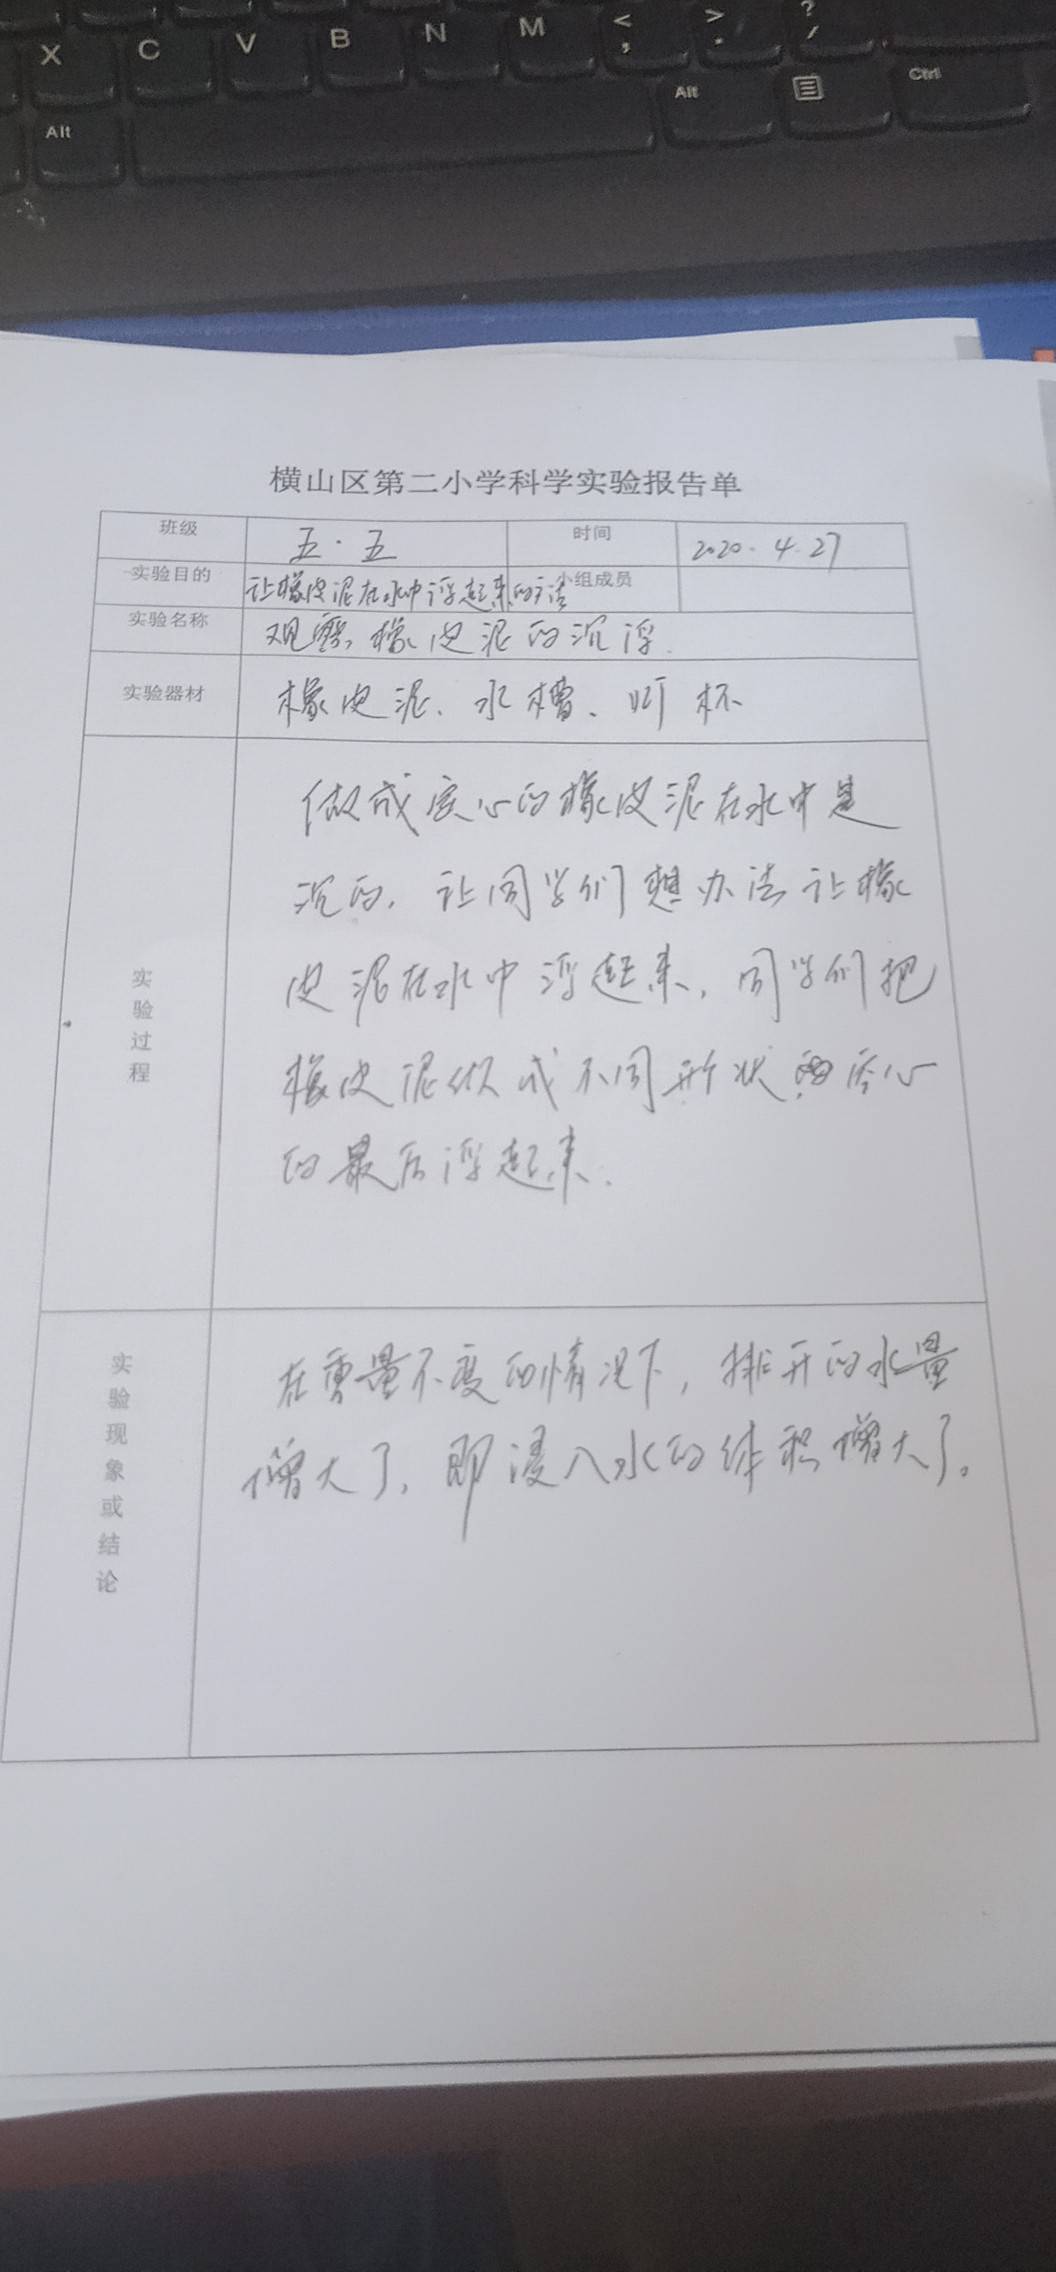 X C V B N M < , > . ? /
Alt Alt Ctrl
横山区第二小学科学实验报告单
班级 五·五 时间 2020.4.27
实验目的 让橡皮泥在水中浮起来的方法 小组成员
实验名称 观察橡皮泥的沉浮.
实验器材 橡皮泥、水槽、 杯
实验过程
做成实心的橡皮泥在水中是
沉的,让同学们想办法让橡
皮泥在水中浮起来,同学们把
橡皮泥做成不同形状 空心
的最后浮起来.
实验现象或结论
在重量不变的情况下,排开的水量
增大了,即浸入水的体积增大了。